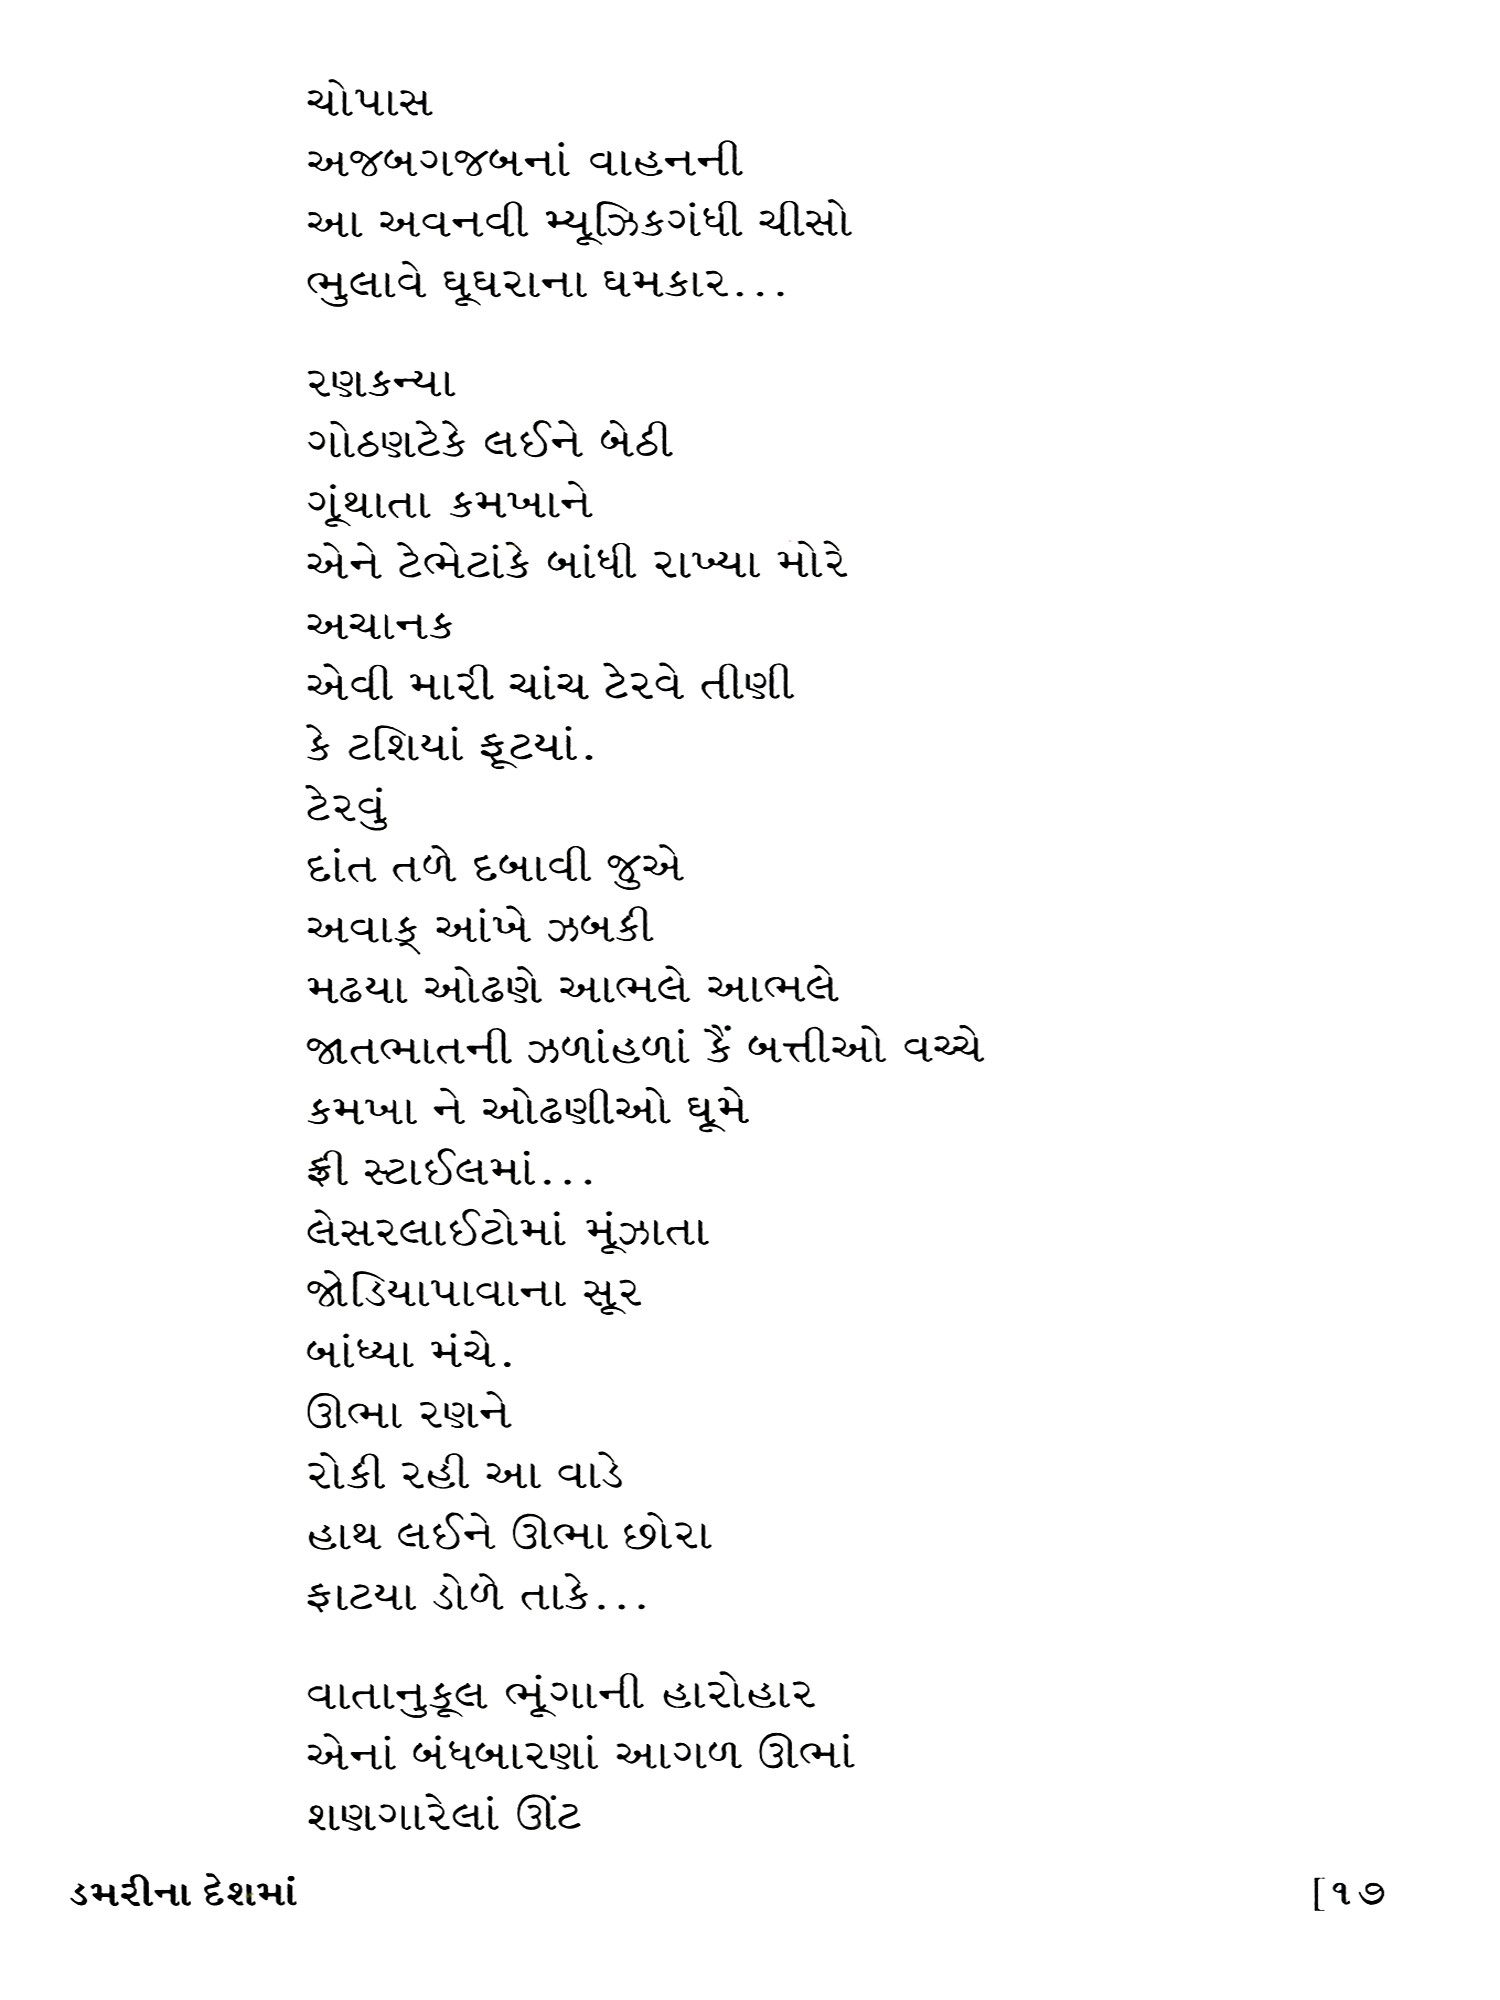 ચોપાસ
અજબગજબનાં વાહનની
આ અવનવી મ્યૂઝિકગંધી ચીસો
ભુલાવે ઘૂઘરાના ઘમકાર...
રણકન્યા
ગોઠણટેકે લઈને બેઠી
ગૂંથાતા કમખાને
એને ટેભેટાંકે બાંધી રાખ્યા મોરે
અચાનક
એવી મારી ચાંચ ટેરવે તીણી
કે ટશિયાં ફૂટયાં.
ટેરવું
દાંત તળે દબાવી જુએ
અવાક્ આંખે ઝબકી
મઢયા ઓઢણે આભલે આભલે
જાતભાતની ઝળાંહળાં કૈં બત્તીઓ વચ્ચે
કમખા ને ઓઢણીઓ ઘૂમે
ફ્રી સ્ટાઈલમાં...
લેસરલાઈટોમાં મૂંઝાતા
જોડિયાપાવાના સૂર
બાંધ્યા મંચે.
ઊભા રણને
રોકી રહી આ વાડે
હાથ લઈને ઊભા છોરા
ફાટયા ડોળે તાકે...
વાતાનુકૂલ ભૂંગાની હારોહાર
એનાં બંધબારણાં આગળ ઊભાં
શણગારેલાં ઊંટ
ડમરીના દેશમાં [૧૭